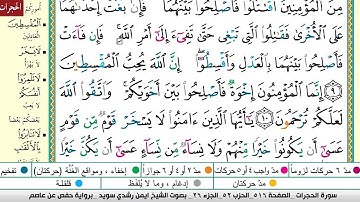 الحجرات
مِنَ الْمُؤْمِنِينَ اقْتَتَلُوا فَأَصْلِحُوا بَيْنَهُمَا فَإِنْ بَغَتْ إِحْدَاهُمَا
عَلَى الْأُخْرَىٰ فَقَاتِلُوا الَّتِي تَبْغِي حَتَّىٰ تَفِيءَ إِلَىٰ أَمْرِ اللَّهِ فَإِنْ فَاءَتْ
فَأَصْلِحُوا بَيْنَهُمَا بِالْعَدْلِ وَأَقْسِطُوا إِنَّ اللَّهَ يُحِبُّ الْمُقْسِطِينَ
٩ إِنَّمَا الْمُؤْمِنُونَ إِخْوَةٌ فَأَصْلِحُوا بَيْنَ أَخَوَيْكُمْ وَاتَّقُوا اللَّهَ
لَعَلَّكُمْ تُرْحَمُونَ ١٠ يَا أَيُّهَا الَّذِينَ آمَنُوا لَا يَسْخَرْ قَوْمٌ مِنْ قَوْمٍ
عَسَىٰ أَنْ يَكُونُوا خَيْرًا مِنْهُمْ وَلَا نِسَاءٌ مِنْ نِسَاءٍ عَسَىٰ أَنْ يَكُنَّ خَيْرًا
الْمُقْسِطِينَ
العادلين
لَا يَسْخَرْ
لا يهزأ
لَا تَلْمِزُوا
أَنْفُسَكُمْ
بعضكم بعضا
مدّ ٦ حركات لزوماً
مدّ واجب ٤ أو ٥ حركات
مدّ ٢ أو ٤ أو ٦ جوازاً
إخفاء، ومواقع الغُنَّة (حركتان)
تفخيم
مدّ حركتان
إدغام، وما لا يُلفَظ
قلقلة
سورة الحجرات - الصفحة ٥١٦ - الحزب ٥٢ - الجزء ٢٦ - بصوت الشيخ أيمن رشدي سويد - برواية حفص عن عاصم